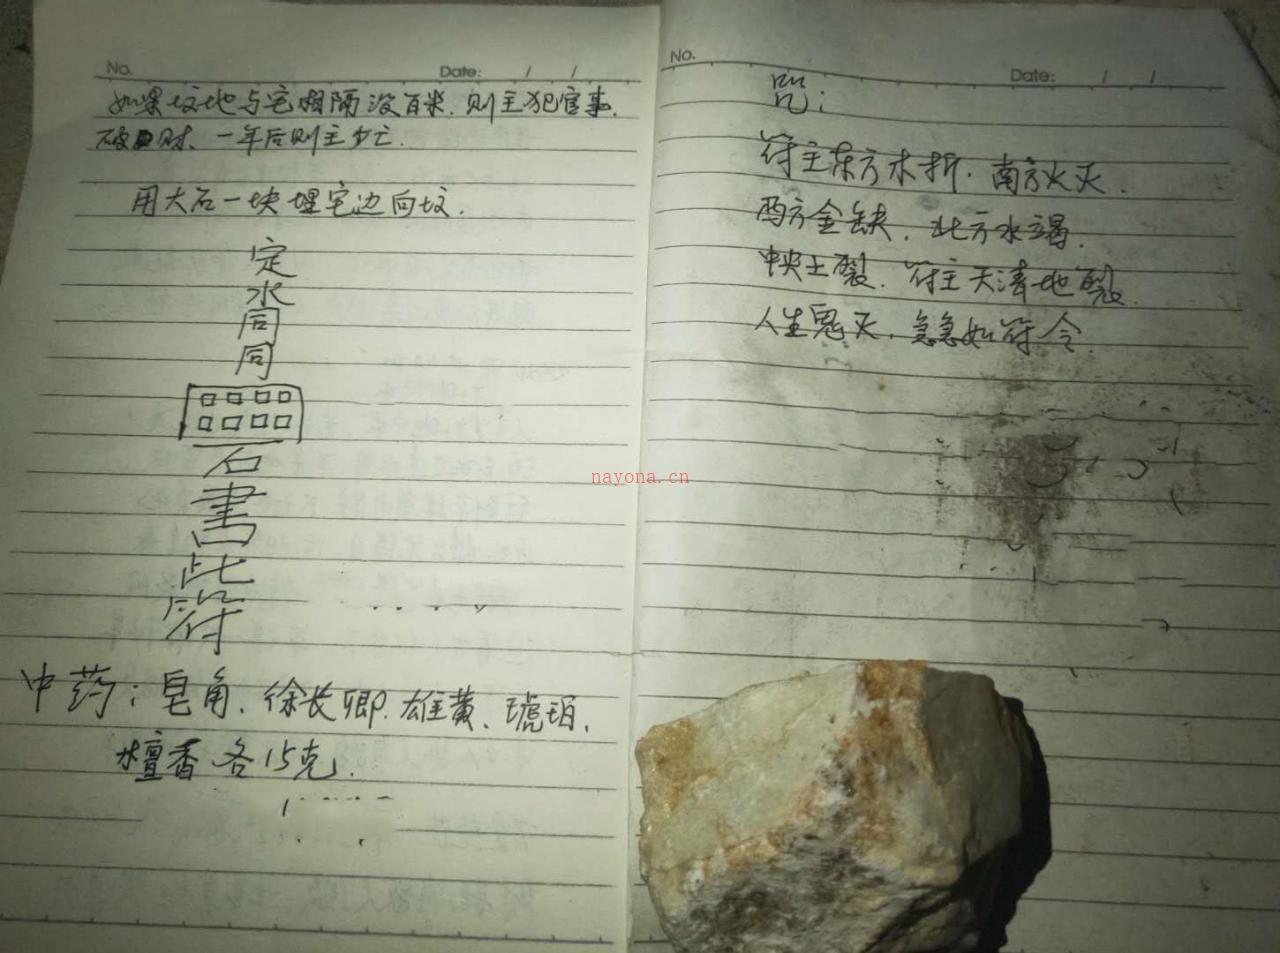 No.
Date: / /
如果坟地与宅相隔没百米.则主犯官事.
破财、一年后则主少亡.
用大石一块埋宅边向坟.
定
水
同
同
石
書
此
符
中药:皂角、徐长卿.雄黄、琥珀、
檀香各15克.
No.
Date: / /
咒:
符主东方木折.南方火灭.
西方金缺.北方水竭.
中央土裂.符主天清地裂.
人生鬼灭.急急如符令.
nayona.cn